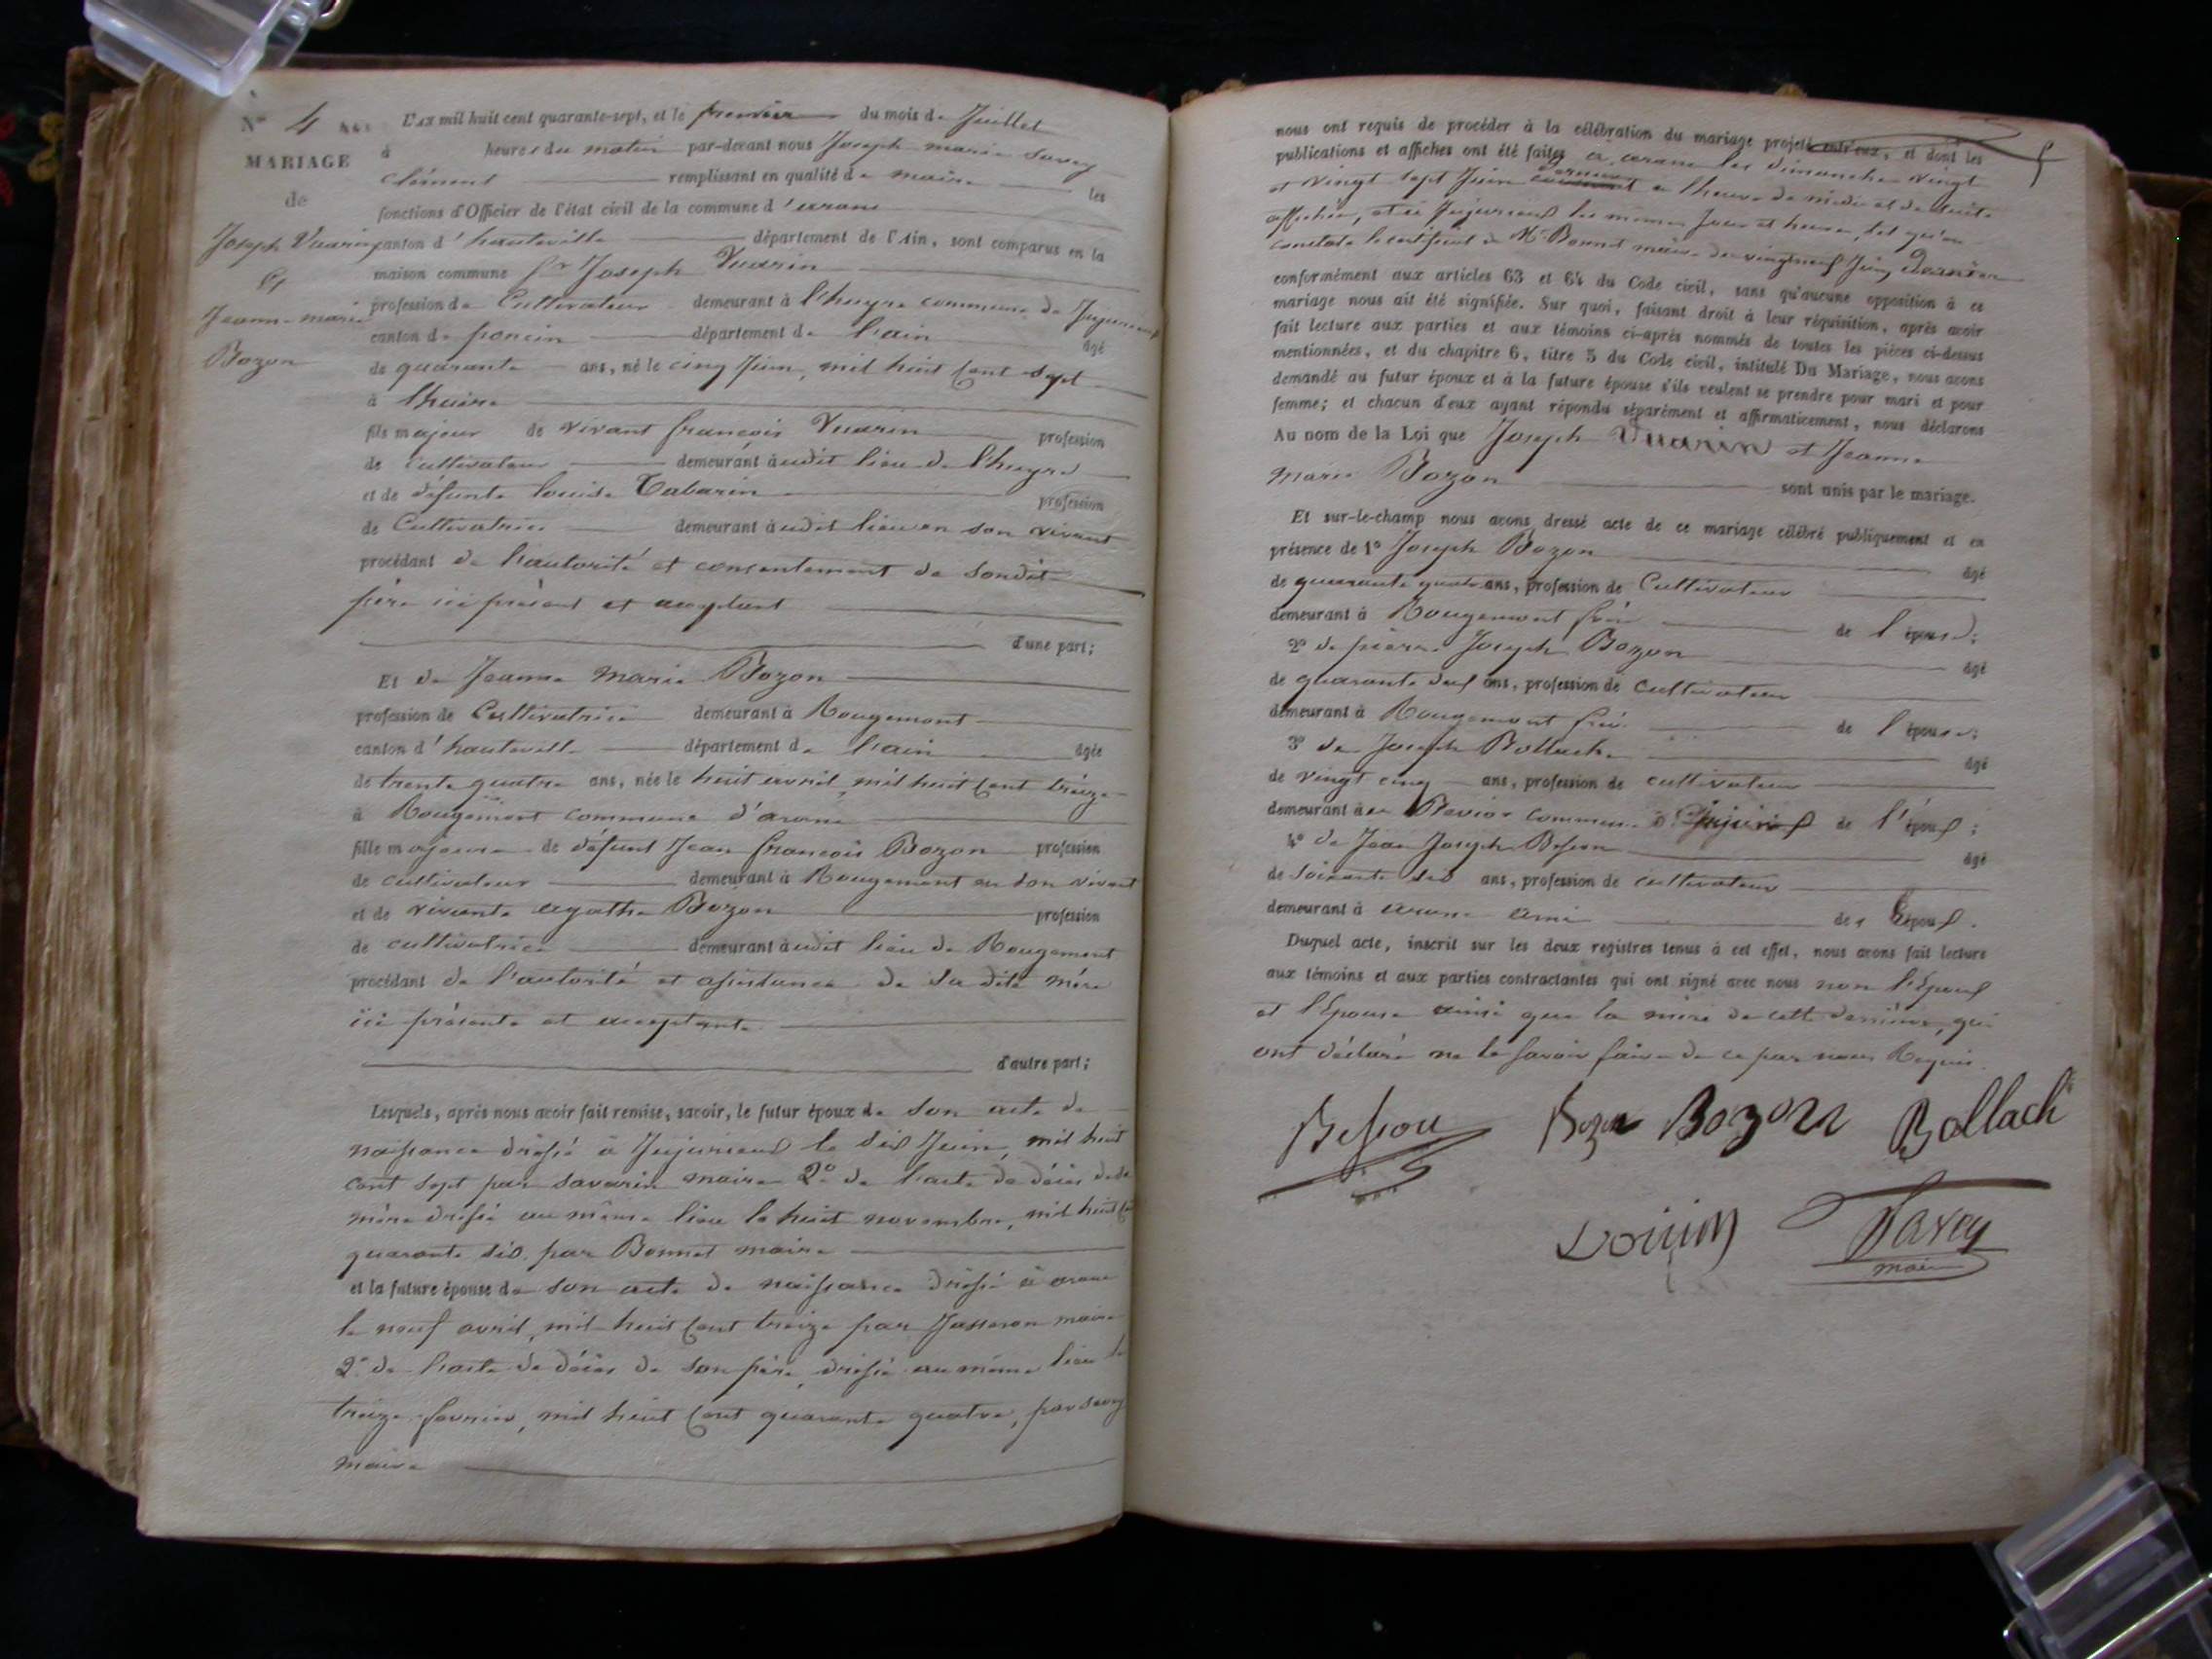 N° 4
MARIAGE
de
Joseph Vuarin
Et
Jeanne-marie
Bozon
L'an mil huit cent quarante-sept, et le premier du mois de Juillet
à heures du matin par-devant nous Joseph marie Savey
clément remplissant en qualité de maire les
fonctions d'Officier de l'état civil de la commune d'arane
canton d'hauteville département de l'Ain, sont comparus en la
maison commune Sr Joseph Vuarin
profession de Cultivateur demeurant à l'huyre commune de Jujurieux
canton de poncin département de l'ain âgé
de quarante ans, né le cinq Juin, mil huit Cent Sept
à lhuire
fils majeur de vivant francois Vuarin profession
de cultivateur demeurant àudit lieu de l'huyre
et de défunte louise Tabarin profession
de Cultivatrice demeurant àudit lieu en son vivant
procédant de l'autorité et consentement de Sondit
père ici présent et acceptant
d'une part;
Et de Jeanne Marie Bozon
profession de Cultivatrice demeurant à Rougemont
canton d'hauteville département de l'ain âgée
de trente quatre ans, née le huit avril, mil huit Cent treize
à Rougemont commune d'arane
fille majeure de défunt Jean francois Bozon profession
de cultivateur demeurant à Rougemont en son vivant
et de vivante agathe Bozon profession
de cultivatrice demeurant àudit lieu de Rougemont
procédant de l'autorité et assistance de sa dite mère
ici présente et acceptante
d'autre part;
Lesquels, après nous avoir fait remise, savoir, le futur époux de Son acte de
naissance dressé à Jujurieux le Six Juin, mil huit
cent sept par savarin maire 2° de l'acte de décès de sa
mère dressé au même lieu le huit novembre, mil huit Cent
quarante six par Bonnet maire
et la future épouse de son acte de naissance dressé à arane
le neuf avril, mil huit Cent treize par Jasseron maire
2° de l'acte de décès de son père, dressé au même lieu le
treize fevrier, mil huit Cent quarante quatre, par savey
maire
nous ont requis de procéder à la célébration du mariage projeté entr'eux, et dont les
publications et affiches ont été faites à arane les dimanche vingt
et vingt sept Juin dernier à l'heure de midi et de suite
affichée, et à Jujurieux les mêmes Jour et heure, tel qu'en
constate le certificat de Mr Bonnet maire du vingt neuf Juin dernier
conformément aux articles 63 et 64 du Code civil, sans qu'aucune opposition à ce
mariage nous ait été signifiée. Sur quoi, faisant droit à leur réquisition, après avoir
fait lecture aux parties et aux témoins ci-après nommés de toutes les pièces ci-dessus
mentionnées, et du chapitre 6, titre 5 du Code civil, intitulé Du Mariage, nous avons
demandé au futur époux et à la future épouse s'ils veulent se prendre pour mari et pour
femme; et chacun d'eux ayant répondu séparément et affirmativement, nous déclarons
Au nom de la Loi que Joseph Vuarin et Jeanne
Marie Bozon sont unis par le mariage.
Et sur-le-champ nous avons dressé acte de ce mariage célébré publiquement et en
présence de 1° Joseph Bozon âgé
de quarante quatre ans, profession de Cultivateur
demeurant à Rougemont frère de l'épouse;
2° de pierre Joseph Bozon âgé
de quarante deux ans, profession de cultivateur
demeurant à Rougemont frère de l'épouse;
3° de Joseph Bollache âgé
de vingt cinq ans, profession de cultivateur
demeurant à commune de Jujurieux de l'époux;
4° de Jean Joseph Besson âgé
de soixante six ans, profession de cultivateur
demeurant à arane ami de l'époux.
Duquel acte, inscrit sur les deux registres tenus à cet effet, nous avons fait lecture
aux témoins et aux parties contractantes qui ont signé avec nous non l'Epoux
et l'Epouse ainsi que la mère de cette dernière, qui
ont déclaré ne le savoir faire de ce par nous Requis.
Besson Bozon Bozon Bollach
Savey
maire